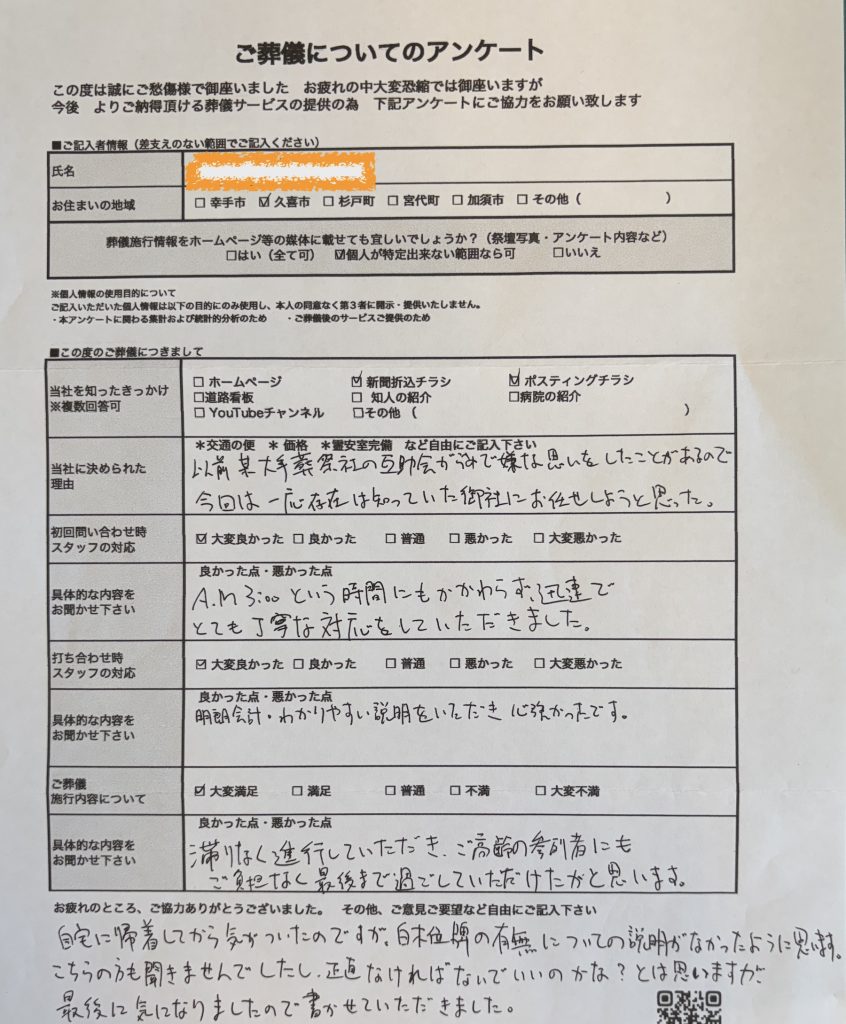 ご葬儀についてのアンケート
この度は誠にご愁傷様で御座いました　お疲れの中大変恐縮では御座いますが
今後　よりご納得頂ける葬儀サービスの提供の為　下記アンケートにご協力をお願い致します
■ご記入者情報（差支えのない範囲でご記入ください）
氏名
お住まいの地域 □ 幸手市 ☑ 久喜市 □ 杉戸町 □ 宮代町 □ 加須市 □ その他（　　　　　）
葬儀施行情報をホームページ等の媒体に載せても宜しいでしょうか？（祭壇写真・アンケート内容など）
□はい（全て可） ☑個人が特定出来ない範囲なら可 □いいえ
※個人情報の使用目的について
ご記入いただいた個人情報は以下の目的にのみ使用し、本人の同意なく第３者に開示・提供いたしません。
・本アンケートに関わる集計および統計的分析のため　・ご葬儀後のサービスご提供のため
■この度のご葬儀につきまして
当社を知ったきっかけ
※複数回答可
□ ホームページ ☑ 新聞折込チラシ ☑ ポスティングチラシ
□道路看板 □ 知人の紹介 □病院の紹介
□ YouTubeチャンネル □その他（　　　　　）
当社に決められた
理由
＊交通の便　＊ 価格　＊霊安室完備　など自由にご記入下さい
以前某大手葬祭社の互助会がらみで嫌な思いをしたことがあるので
今回は一応存在は知っていた御社にお任せしようと思った。
初回問い合わせ時
スタッフの対応
☑ 大変良かった □ 良かった □ 普通 □ 悪かった □ 大変悪かった
具体的な内容を
お聞かせ下さい
良かった点・悪かった点
A.M 3:00 という時間にもかかわらず、迅速で
とても丁寧な対応をしていただきました。
打ち合わせ時
スタッフの対応
☑ 大変良かった □ 良かった □ 普通 □ 悪かった □ 大変悪かった
具体的な内容を
お聞かせ下さい
良かった点・悪かった点
明朗会計・わかりやすい説明をいただき心強かったです。
ご葬儀
施行内容について
☑ 大変満足 □ 満足 □ 普通 □ 不満 □ 大変不満
具体的な内容を
お聞かせ下さい
良かった点・悪かった点
滞りなく進行していただき、ご高齢の参列者にも
ご負担なく最後まで過ごしていただけたかと思います。
お疲れのところ、ご協力ありがとうございました。　その他、ご意見ご要望など自由にご記入下さい
自宅に帰着してから気がついたのですが、白木位牌の有無についての説明がなかったように思います。
こちらの方も聞きませんでしたし、正直なければないでいいのかな？とは思いますが、
最後に気になりましたので書かせていただきました。